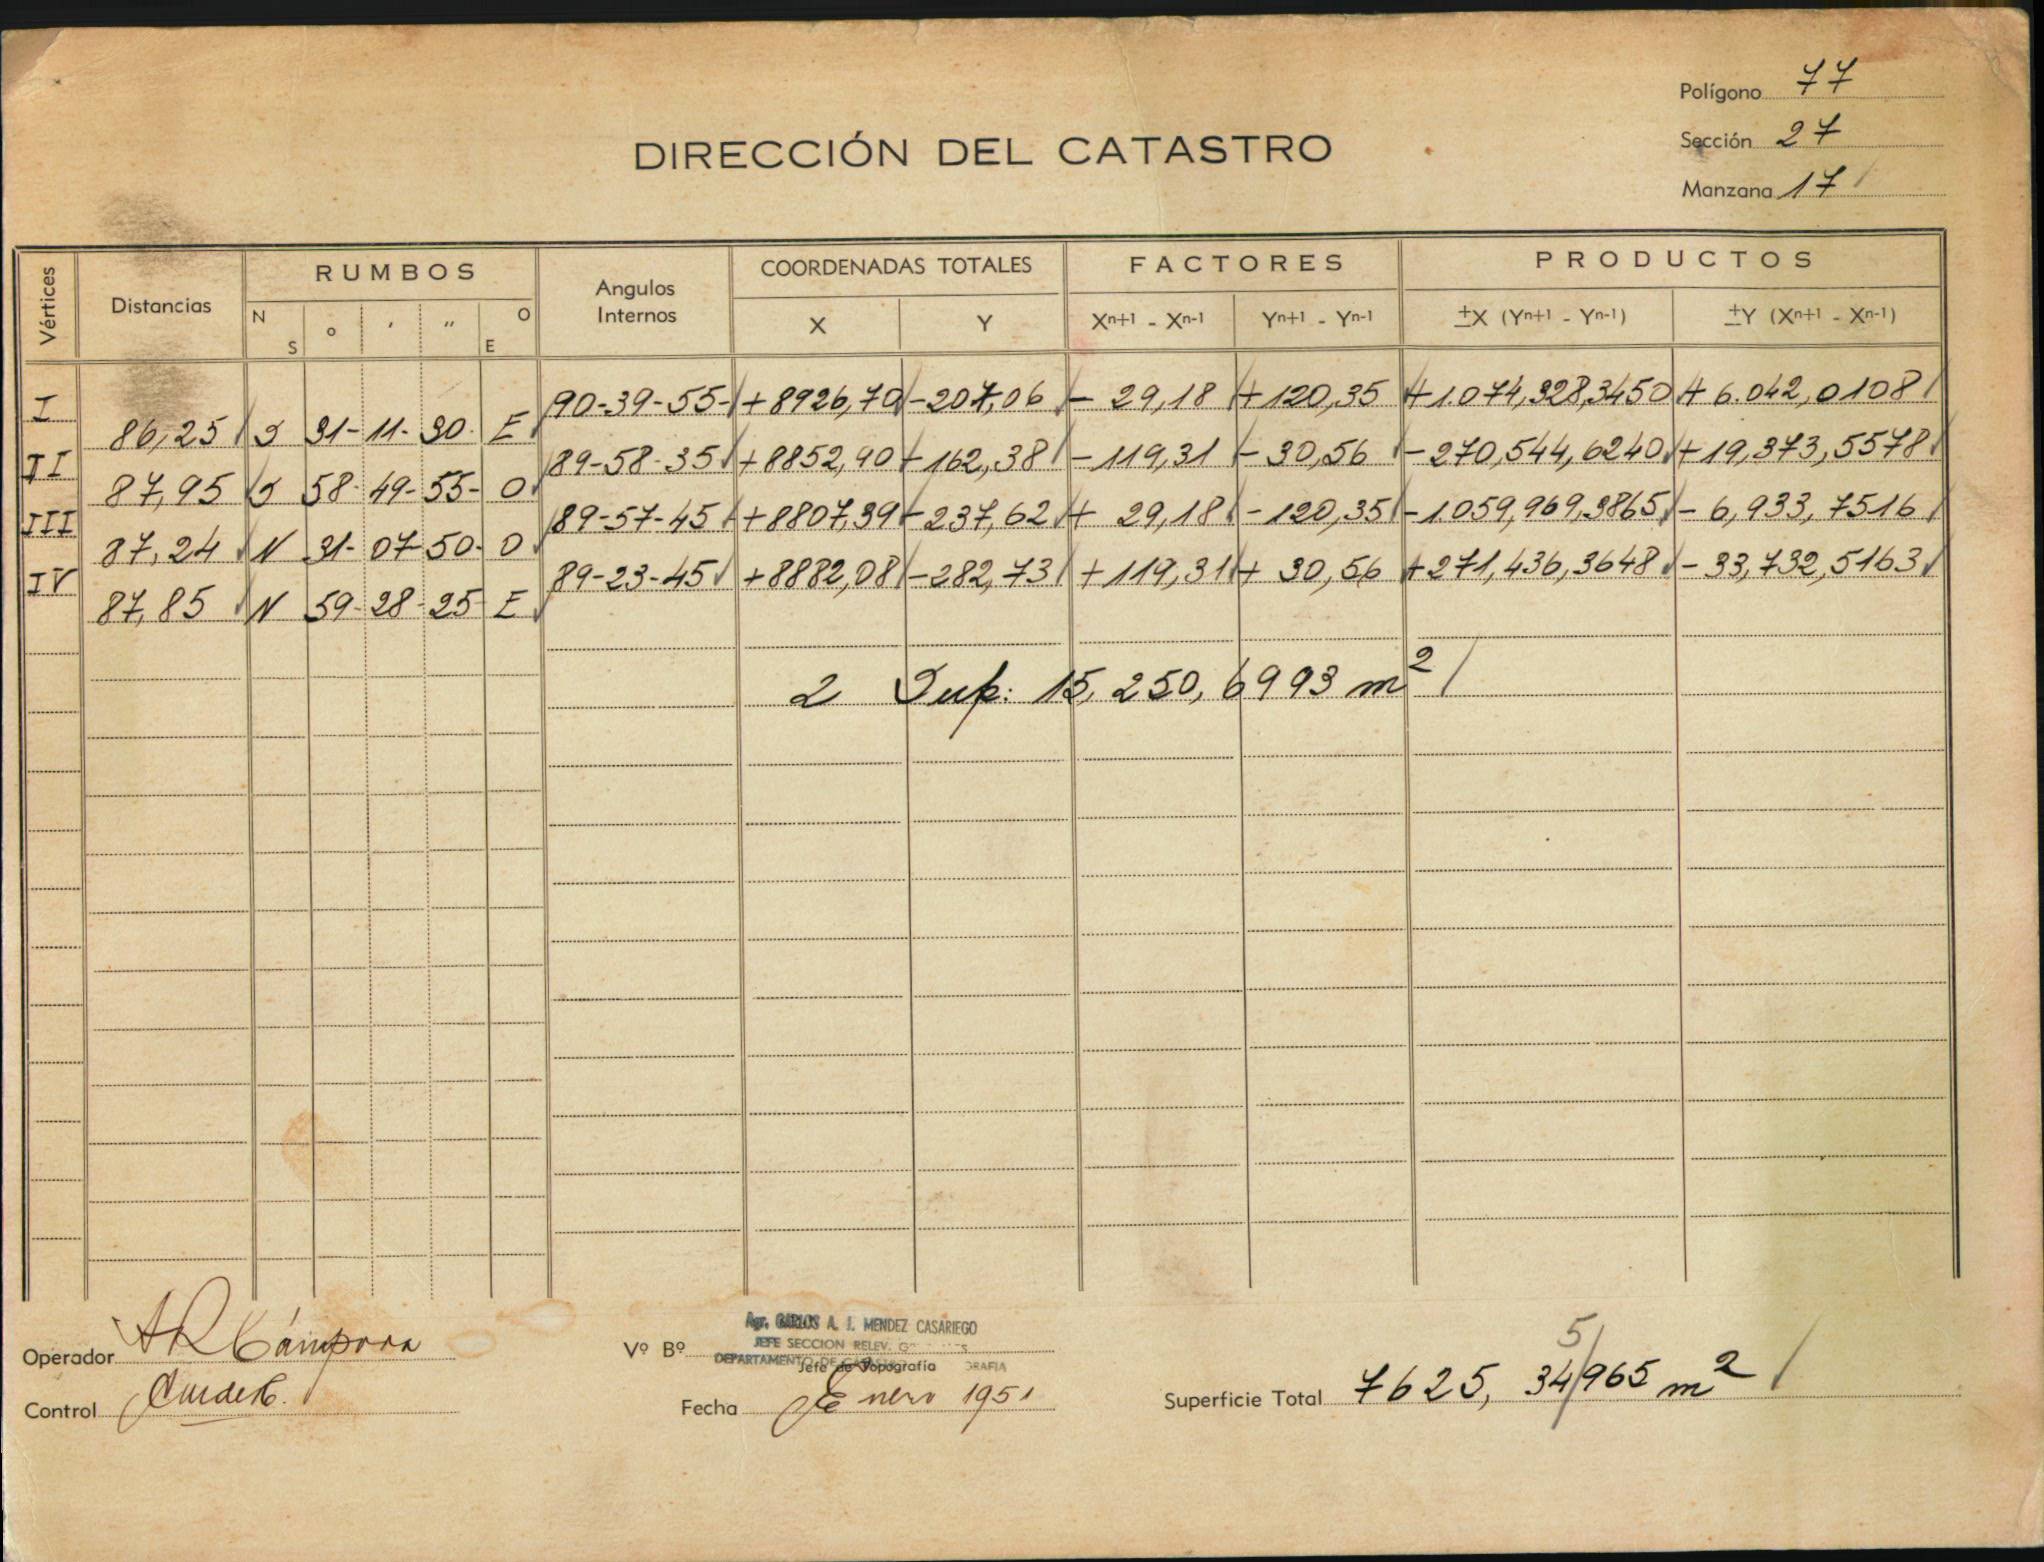 Polígono 77
DIRECCIÓN DEL CATASTRO
Sección 27
Manzana 17
Vértices Distancias RUMBOS N S ° ' " O E Angulos Internos COORDENADAS TOTALES X Y FACTORES Xn+1 - Xn-1 Yn+1 - Yn-1 PRODUCTOS ±X (Yn+1 - Yn-1) ±Y (Xn+1 - Xn-1)
I 90-39-55- +8926,70 -207,06 - 29,18 +120,35 +1.074,328,3450 + 6.042,0108
86,25 S 31- 11- 30- E
II 89-58-35 +8852,90 -162,38 -119,31 - 30,56 -270,544,6240 +19,373,5578
87,95 S 58- 49- 55- O
III 89-57-45 +8807,39 -237,62 + 29,18 -120,35 -1.059,969,3865 - 6,933,7516
87,24 N 31- 07- 50- O
IV 89-23-45 +8882,08 -282,73 +119,31 + 30,56 +271,436,3648 - 33,732,5163
87,85 N 59- 28- 25- E
2 Sup: 15,250,6993 m2
Agr. CARLOS A. J. MENDEZ CASARIEGO
JEFE SECCION RELEV.
DEPARTAMENTO DE
Jefe de Topografía
Operador A R Cámpora
Vº Bº
Control
Fecha Enero 1951
5
Superficie Total 7625, 34965 m2